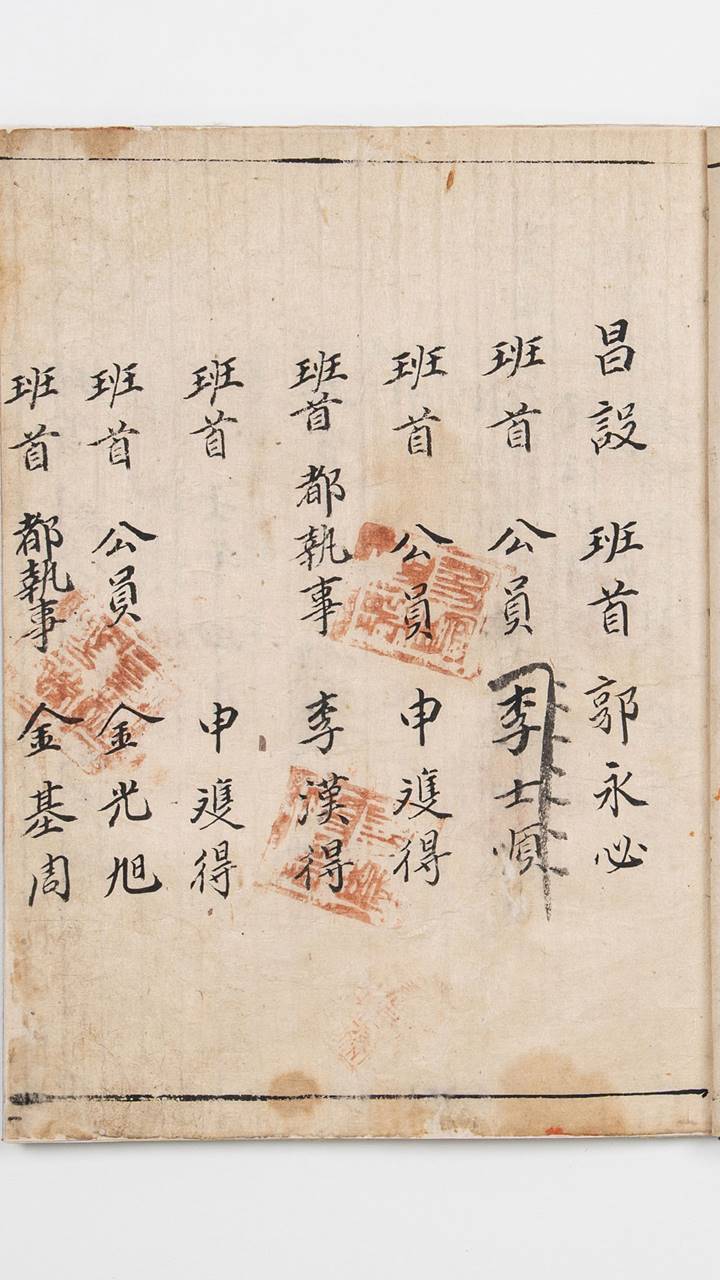 昌設 班首 郭永必
班首 公員 李士順
班首 公員 申䨥得
班首 都執事 李漢得
班首 申䨥得
班首 公員 金光旭
班首 都執事 金基周